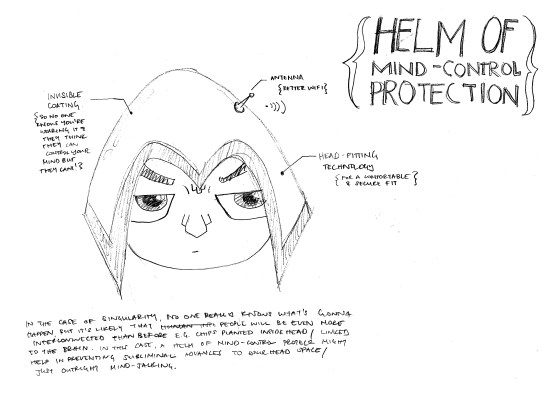 HELM OF
MIND-CONTROL
PROTECTION
ANTENNA
{BETTER WIFI}
INVISIBLE
COATING
{SO NO ONE
KNOWS YOU'RE
WEARING IT &
THEY THINK
THEY CAN
CONTROL YOUR
MIND BUT
THEY CANT!}
HEAD-FITTING
TECHNOLOGY
{FOR A COMFORTABLE
& SECURE FIT}
IN THE CASE OF SINGULARITY, NO ONE REALLY KNOWS WHAT'S GONNA
HAPPEN BUT IT'S LIKELY THAT HUMAN PEOPLE WILL BE EVEN MORE
INTERCONNECTED THAN BEFORE E.G. CHIPS PLANTED INSIDE HEAD/ LINKED
TO THE BRAIN. IN THIS CASE, A HELM OF MIND-CONTROL MIGHT
HELP IN PREVENTING SUBLIMINAL ADVANCES TO OUR HEAD SPACE/
JUST OUTRIGHT MIND-JACKING.